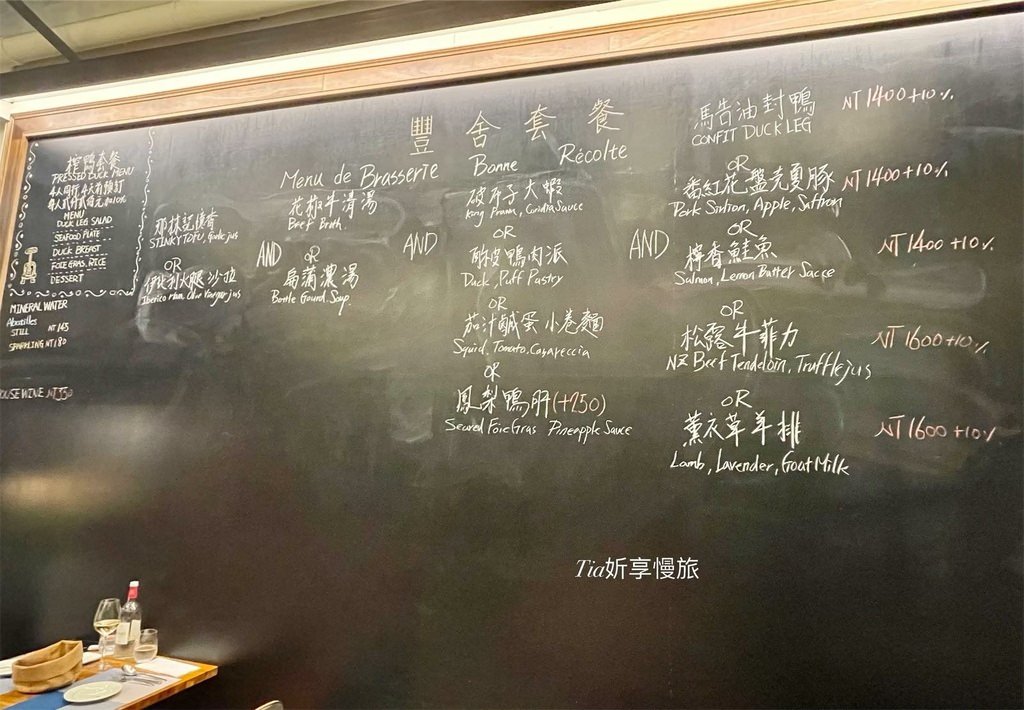 豐舍套餐
Menu de Brasserie Bonne Récolte
榨鴨套餐
PRESSED DUCK MENU
4人同行 4天前預訂
MENU
DUCK LEG SALAD
SEAFOOD PLATE
DUCK BREAST
FOIE GRAS, RICE
DESSERT
MINERAL WATER
Abatilles
STILL NT 145
SPARKLING NT 180
HOUSE WINE NT 350
STINKY TOFU, Garlic jus
OR
伊比利火腿沙拉
AND
花椒牛清湯
Beef Broth.
OR
扁蒲濃湯
Bottle Gourd Soup
AND
破布子大蝦
King Prawn, Cordia Sauce
OR
酥皮鴨肉派
Duck, Puff Pastry
OR
茄汁鹹蛋小卷麵
Squid, Tomato, Casareccia
OR
鳳梨鴨肝(+250)
Seared Foie Gras Pineapple Sauce
AND
馬告油封鴨 NT 1400+10%
CONFIT DUCK LEG
OR
番紅花盤克夏豚 NT 1400+10%
Pork Sirloin, Apple, Saffron
OR
檸香鮭魚 NT 1400+10%
Salmon, Lemon Butter Sauce
OR
松露牛菲力 NT 1600+10%
NZ Beef Tendeloin, Truffle jus
OR
薰衣草羊排 NT 1600+10%
Lamb, Lavender, Goat Milk
Tia妡享慢旅